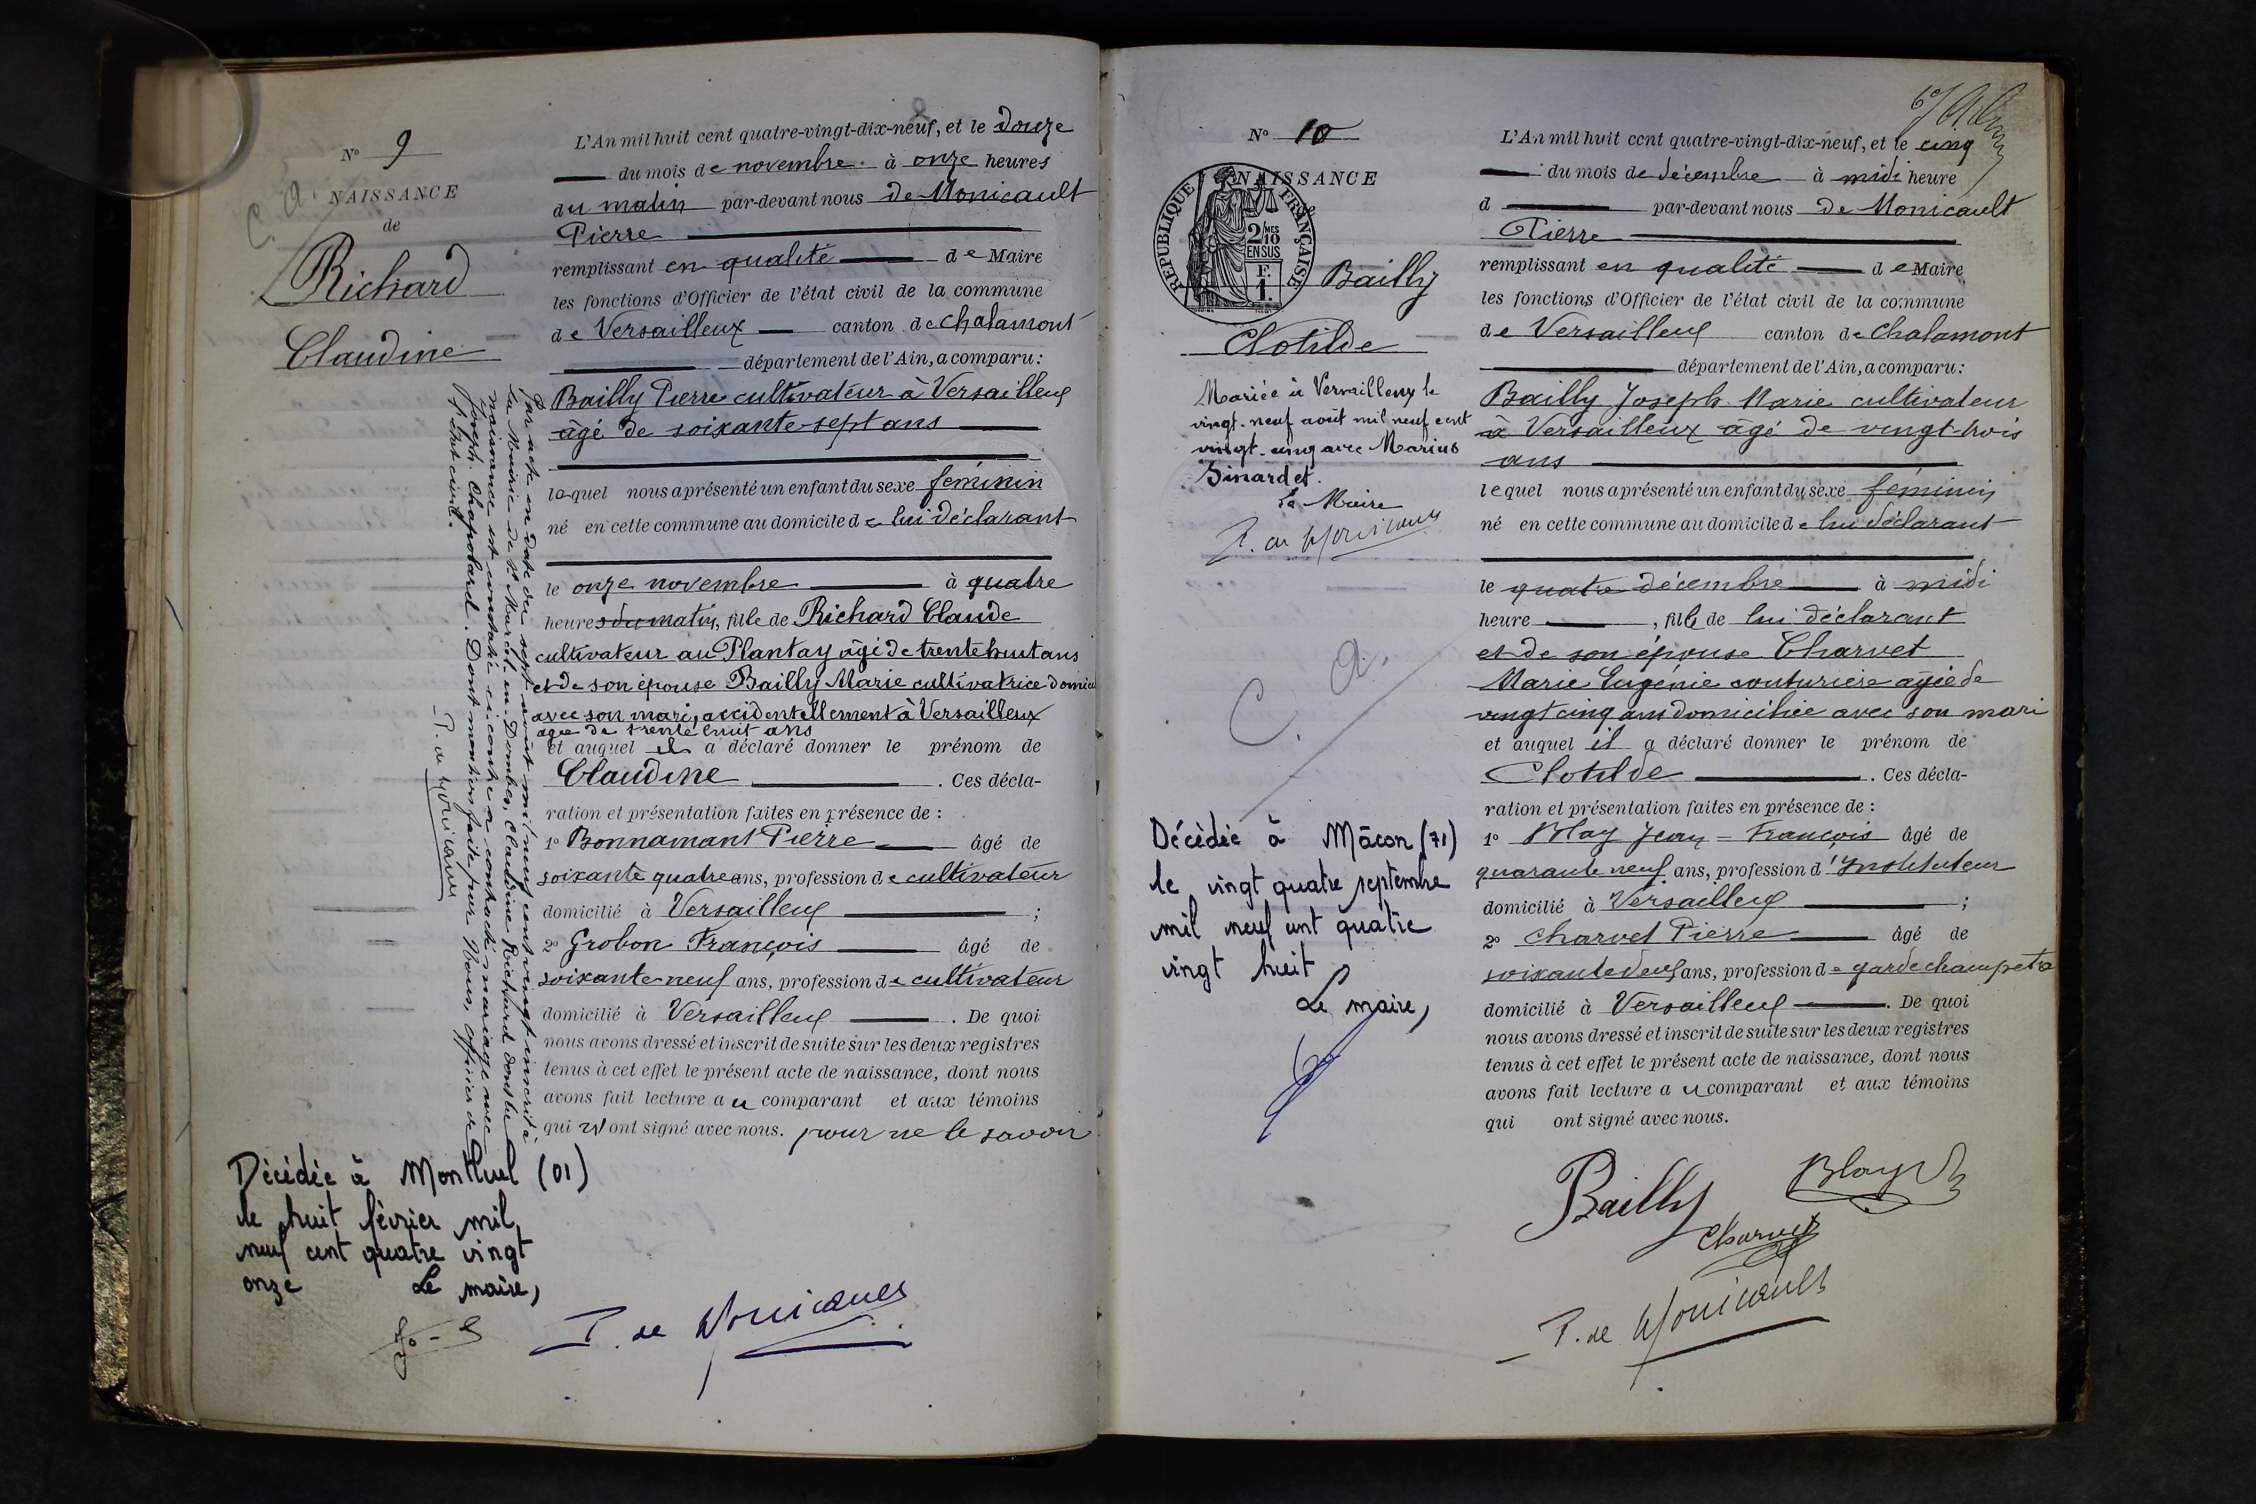 N° 9
C. a.
NAISSANCE
de
Richard
Claudine
Par acte en date du sept août mil neuf cent vingt inscrit à
la Mairie de St Marcel-en-Dombes, Claudine Richard dont la
naissance est constatée ci-contre a contracté mariage avec
Joseph Chapolard. Dont mention faite par Nous, officier de
l'état civil.
P. de Monicault
Décédée à Montluel (01)
le huit février mil
neuf cent quatre vingt
onze
Le maire,
L'An mil huit cent quatre-vingt-dix-neuf, et le douze
du mois de novembre à onze heures
du matin par-devant nous de Monicault
Pierre
remplissant en qualité de Maire
les fonctions d'Officier de l'état civil de la commune
de Versailleux canton de Chalamont
département de l'Ain, a comparu:
Bailly Pierre cultivateur à Versailleux
âgé de soixante-sept ans
lequel nous a présenté un enfant du sexe féminin
né en cette commune au domicile de lui déclarant
le onze novembre à quatre
heures du matin, fille de Richard Claude
cultivateur au Plantay âgé de trente huit ans
et de son épouse Bailly Marie cultivatrice domici
avec son mari, accidentellement à Versailleux
agée de trente huit ans
et auquel il a déclaré donner le prénom de
Claudine . Ces décla-
ration et présentation faites en présence de :
1° Bonnamant Pierre âgé de
soixante quatre ans, profession de cultivateur
domicilié à Versailleux ;
2° Grobon François âgé de
soixante-neuf ans, profession de cultivateur
domicilié à Versailleux . De quoi
nous avons dressé et inscrit de suite sur les deux registres
tenus à cet effet le présent acte de naissance, dont nous
avons fait lecture au comparant et aux témoins
qui n'ont signé avec nous. pour ne le savoir
P. de Monicault
N° 10
NAISSANCE
REPUBLIQUE FRANÇAISE
2/10
MES
EN SUS
F.
1.
Bailly
Clotilde
Mariée à Versailleux le
vingt-neuf août mil neuf cent
vingt-cinq avec Marius
Sinardet.
Le Maire
P. de Monicault
C. a.
Décédée à Mâcon (71)
le vingt quatre septembre
mil neuf cent quatre
vingt huit
Le maire,
L'An mil huit cent quatre-vingt-dix-neuf, et le cinq
du mois de décembre à midi heure
d par-devant nous de Monicault
Pierre
remplissant en qualité de Maire
les fonctions d'Officier de l'état civil de la commune
de Versailleux canton de Chalamont
département de l'Ain, a comparu:
Bailly Joseph-Marie cultivateur
à Versailleux âgé de vingt-trois
ans
lequel nous a présenté un enfant du sexe féminin
né en cette commune au domicile de lui déclarant
le quatre décembre à midi
heure , fille de lui déclarant
et de son épouse Charvet
Marie Eugénie couturière agée de
vingt cinq ans domiciliée avec son mari
et auquel il a déclaré donner le prénom de
Clotilde . Ces décla-
ration et présentation faites en présence de :
1° Blay Jean-François âgé de
quarante neuf ans, profession d'Instituteur
domicilié à Versailleux ;
2° Charvet Pierre âgé de
soixante deux ans, profession de garde champetre
domicilié à Versailleux . De quoi
nous avons dressé et inscrit de suite sur les deux registres
tenus à cet effet le présent acte de naissance, dont nous
avons fait lecture au comparant et aux témoins
qui ont signé avec nous.
Bailly
Blay
Charvet
P. de Monicault